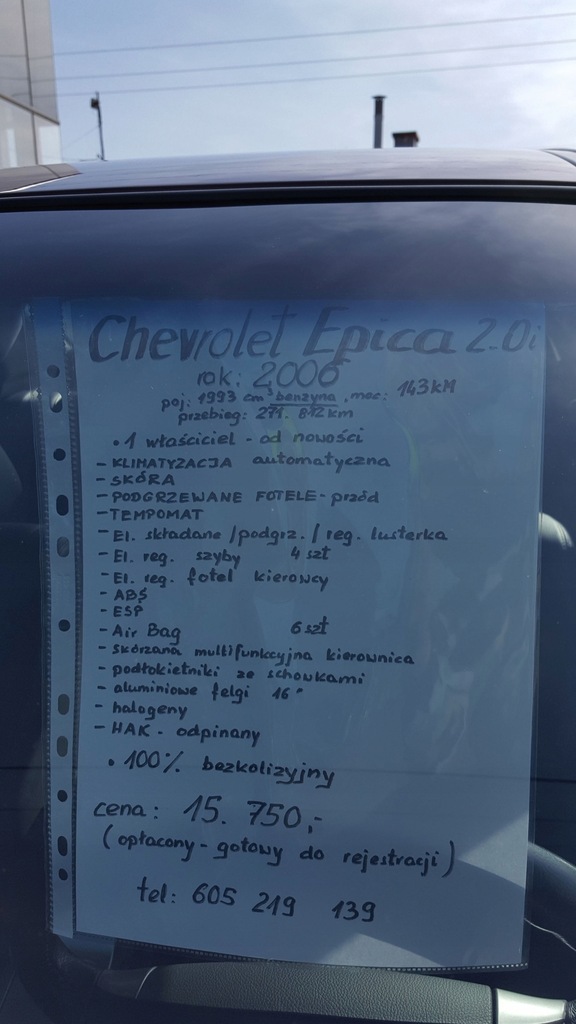 Chevrolet Epica 2.0i
rok: 2006
poj: 1993 cm³ benzyna, moc: 143kM
przebieg: 271. 812 km
• 1 właściciel - od nowości
- KLIMATYZACJA automatyczna
- SKÓRA
- PODGRZEWANE FOTELE - przód
- TEMPOMAT
- El. składane /podgrz. / reg. lusterka
- El. reg. szyby 4 szt
- El. reg. fotel kierowcy
- ABS
- ESP
- Air Bag 6 szt
- skórzana multifunkcyjna kierownica
- podłokietniki ze schowkami
- aluminiowe felgi 16"
- halogeny
- HAK - odpinany
• 100% bezkolizyjny
cena: 15. 750,-
(opłacony - gotowy do rejestracji)
tel: 605 219 139